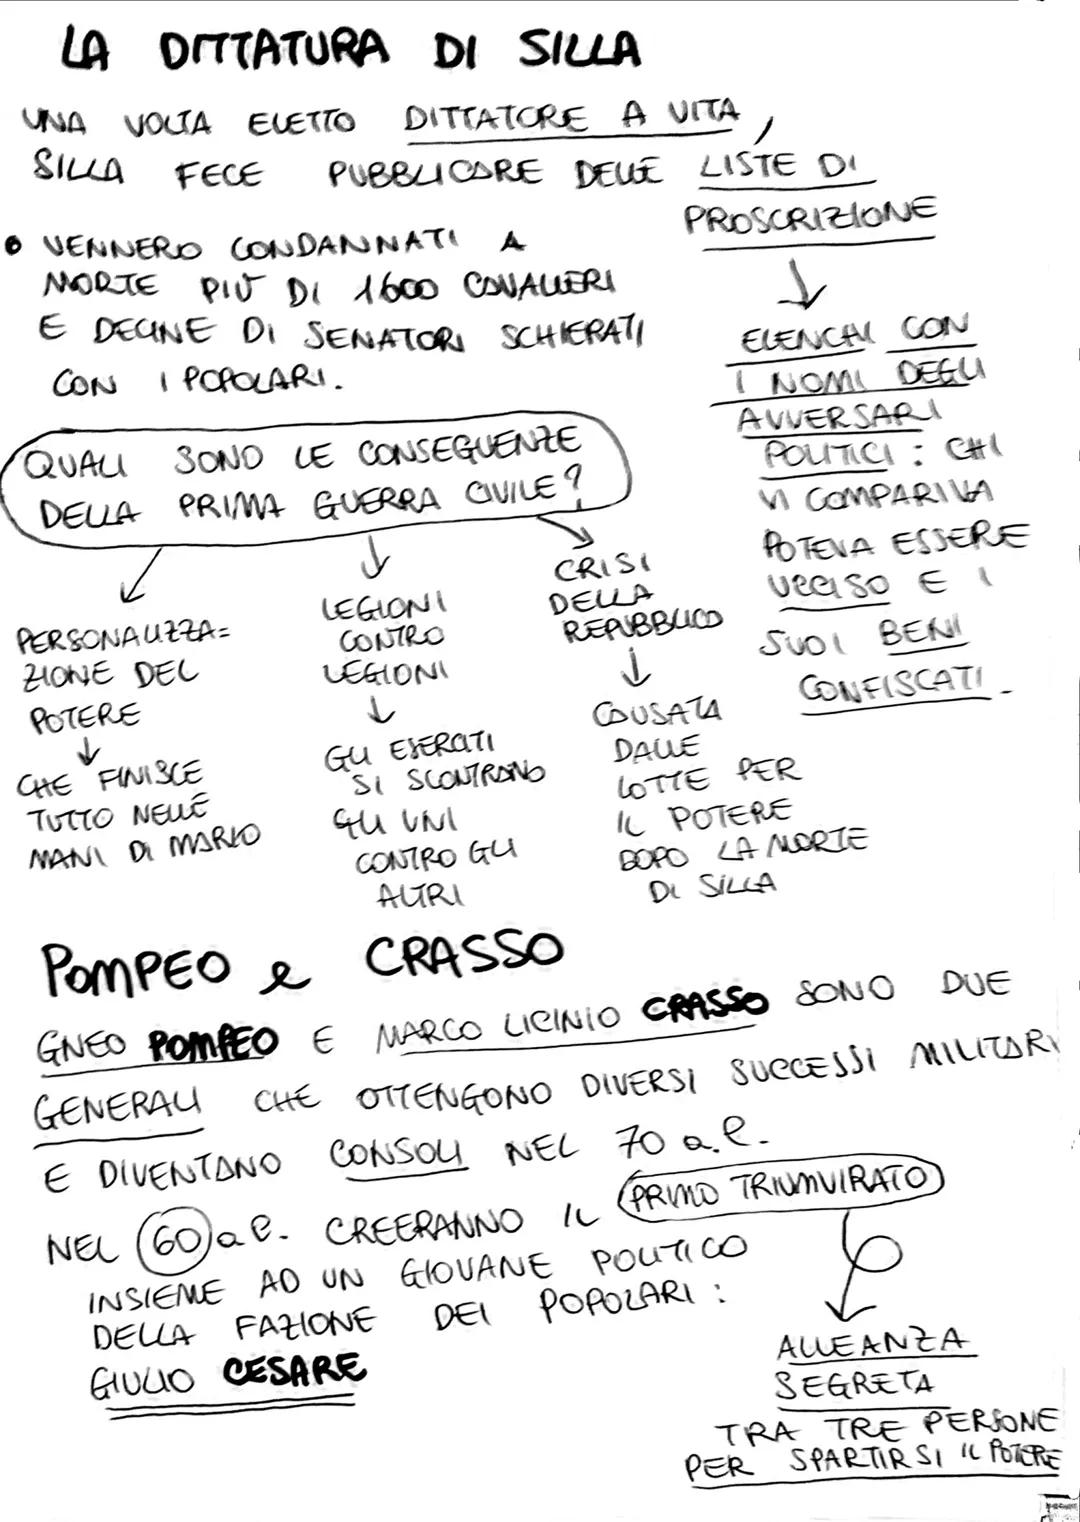 LA DITTATURA DI SILLA
UNA VOLTA ELETTO DITTATORE A VITA,
SILLA FECE PUBBLICARE DELLE LISTE DI
PROSCRIZIONE
• VENNERO CONDANNATI A
MORTE PIÙ DI 1600 CAVALIERI
E DECINE DI SENATORI SCHIERATI
CON I POPOLARI.
ELENCHI CON
I NOMI DEGLI
AVVERSARI
POLITICI : CHI
VI COMPARIVA
POTEVA ESSERE
UCCISO E I
SUOI BENI
CONFISCATI.
QUALI SONO LE CONSEGUENZE
DELLA PRIMA GUERRA CIVILE?
PERSONALIZZA=
ZIONE DEL
POTERE
CHE FINISCE
TUTTO NELLE
MANI DI MARIO
LEGIONI
CONTRO
LEGIONI
GLI ESERCITI
SI SCONTRANO
GLI UNI
CONTRO GLI
ALTRI
CRISI
DELLA
REPUBBLICA
CAUSATA
DALLE
LOTTE PER
IL POTERE
DOPO LA MORTE
DI SILLA
POMPEO e CRASSO
GNEO POMPEO E MARCO LICINIO CRASSO SONO DUE
GENERALI CHE OTTENGONO DIVERSI SUCCESSI MILITARI
E DIVENTANO CONSOLI NEL 70 a.C.
NEL 60 a.C. CREERANNO IL PRIMO TRIUMVIRATO
INSIEME AD UN GIOVANE POLITICO
DELLA FAZIONE DEI POPOLARI :
GIULIO CESARE
ALLEANZA
SEGRETA
TRA TRE PERSONE
PER SPARTIRSI IL POTERE